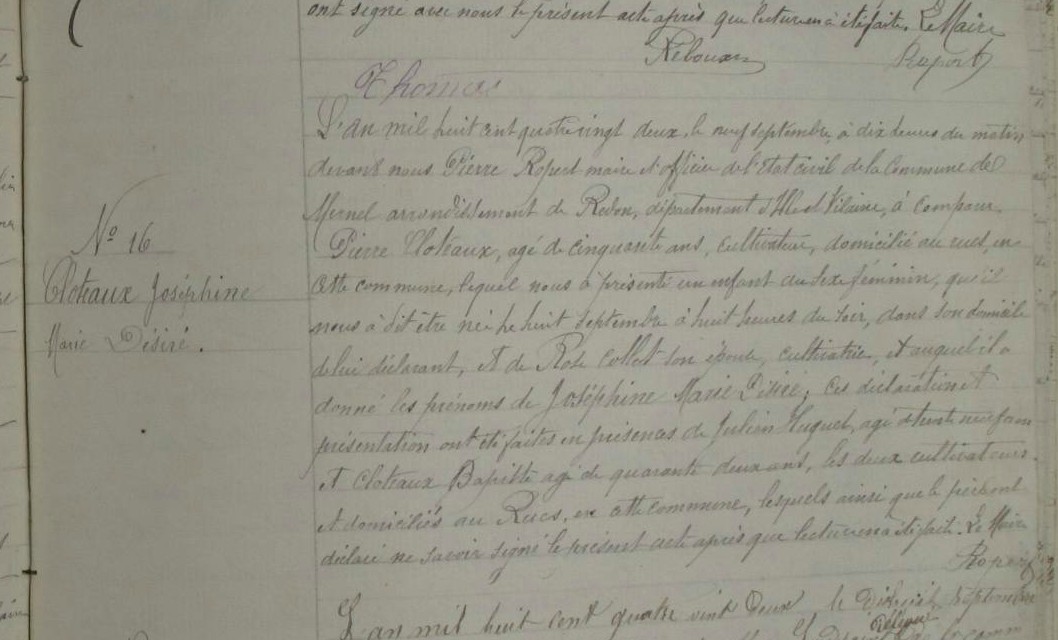 ont signé avec nous le présent acte après que lecture en a été faite. Le Maire
Rebouxn
Ropert
Thomas
L'an mil huit cent quatre vingt deux, le neuf septembre, à dix heures du matin
devant nous Pierre Ropert maire et officier de l'Etat civil de la Commune de
Mernel arrondissement de Redon, département d'Ille et Vilaine, à comparu
Pierre Cloteaux, agé de cinquante ans, cultivateur, domicilié au rues, en
cette commune, lequel nous à présenté un enfant du sexe féminin, qu'il
nous à dit être né le huit septembre à huit heures du soir, dans son domicile
de lui déclarant, et de Rose Collet son épouse, cultivatrice, et auquel il a
donné les prénoms de Joséphine Marie Désiré; ces déclaration et
présentation ont été faites en présences de Julien Huguet, agé de trente neuf ans
et Cloteaux Baptiste agé de quarante deux ans, les deux cultivateurs
et domiciliés au Rues, en cette commune, lesquels ainsi que le père ont
déclaré ne savoir signé le présent acte après que lecture en a été fait. Le Maire
Ropert
N° 16
Cloteaux Joséphine
Marie Désiré.
L'an mil huit cent quatre vint deux le Dixhuit septembre